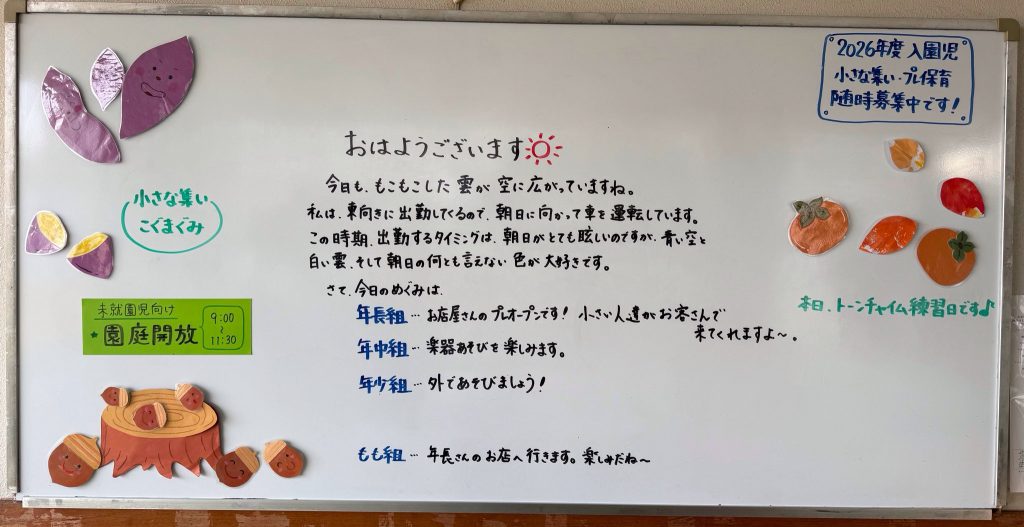 2026年度 入園児
小さな集い・プレ保育
随時募集中です!
おはようございます
今日も、もこもこした 雲が 空に広がっていますね。
私は、東向きに出勤してくるので、朝日に向かって車を運転しています。
この時期、出勤するタイミングは、朝日がとても眩しいのですが、青い空と
白い雲、そして朝日の何とも言えない色が大好きです。
さて、今日のめぐみは、
年長組… お店屋さんのプレオープンです! 小さい人達がお客さんで
来てくれますよ〜。
年中組… 楽器あそびを楽しみます。
年少組… 外であそびましょう!
もも組… 年長さんのお店へ行きます。楽しみだね〜
小さな集い
こぐまぐみ
未就園児向け
園庭開放
9:00
〜
11:30
本日、トーンチャイム練習日です♪